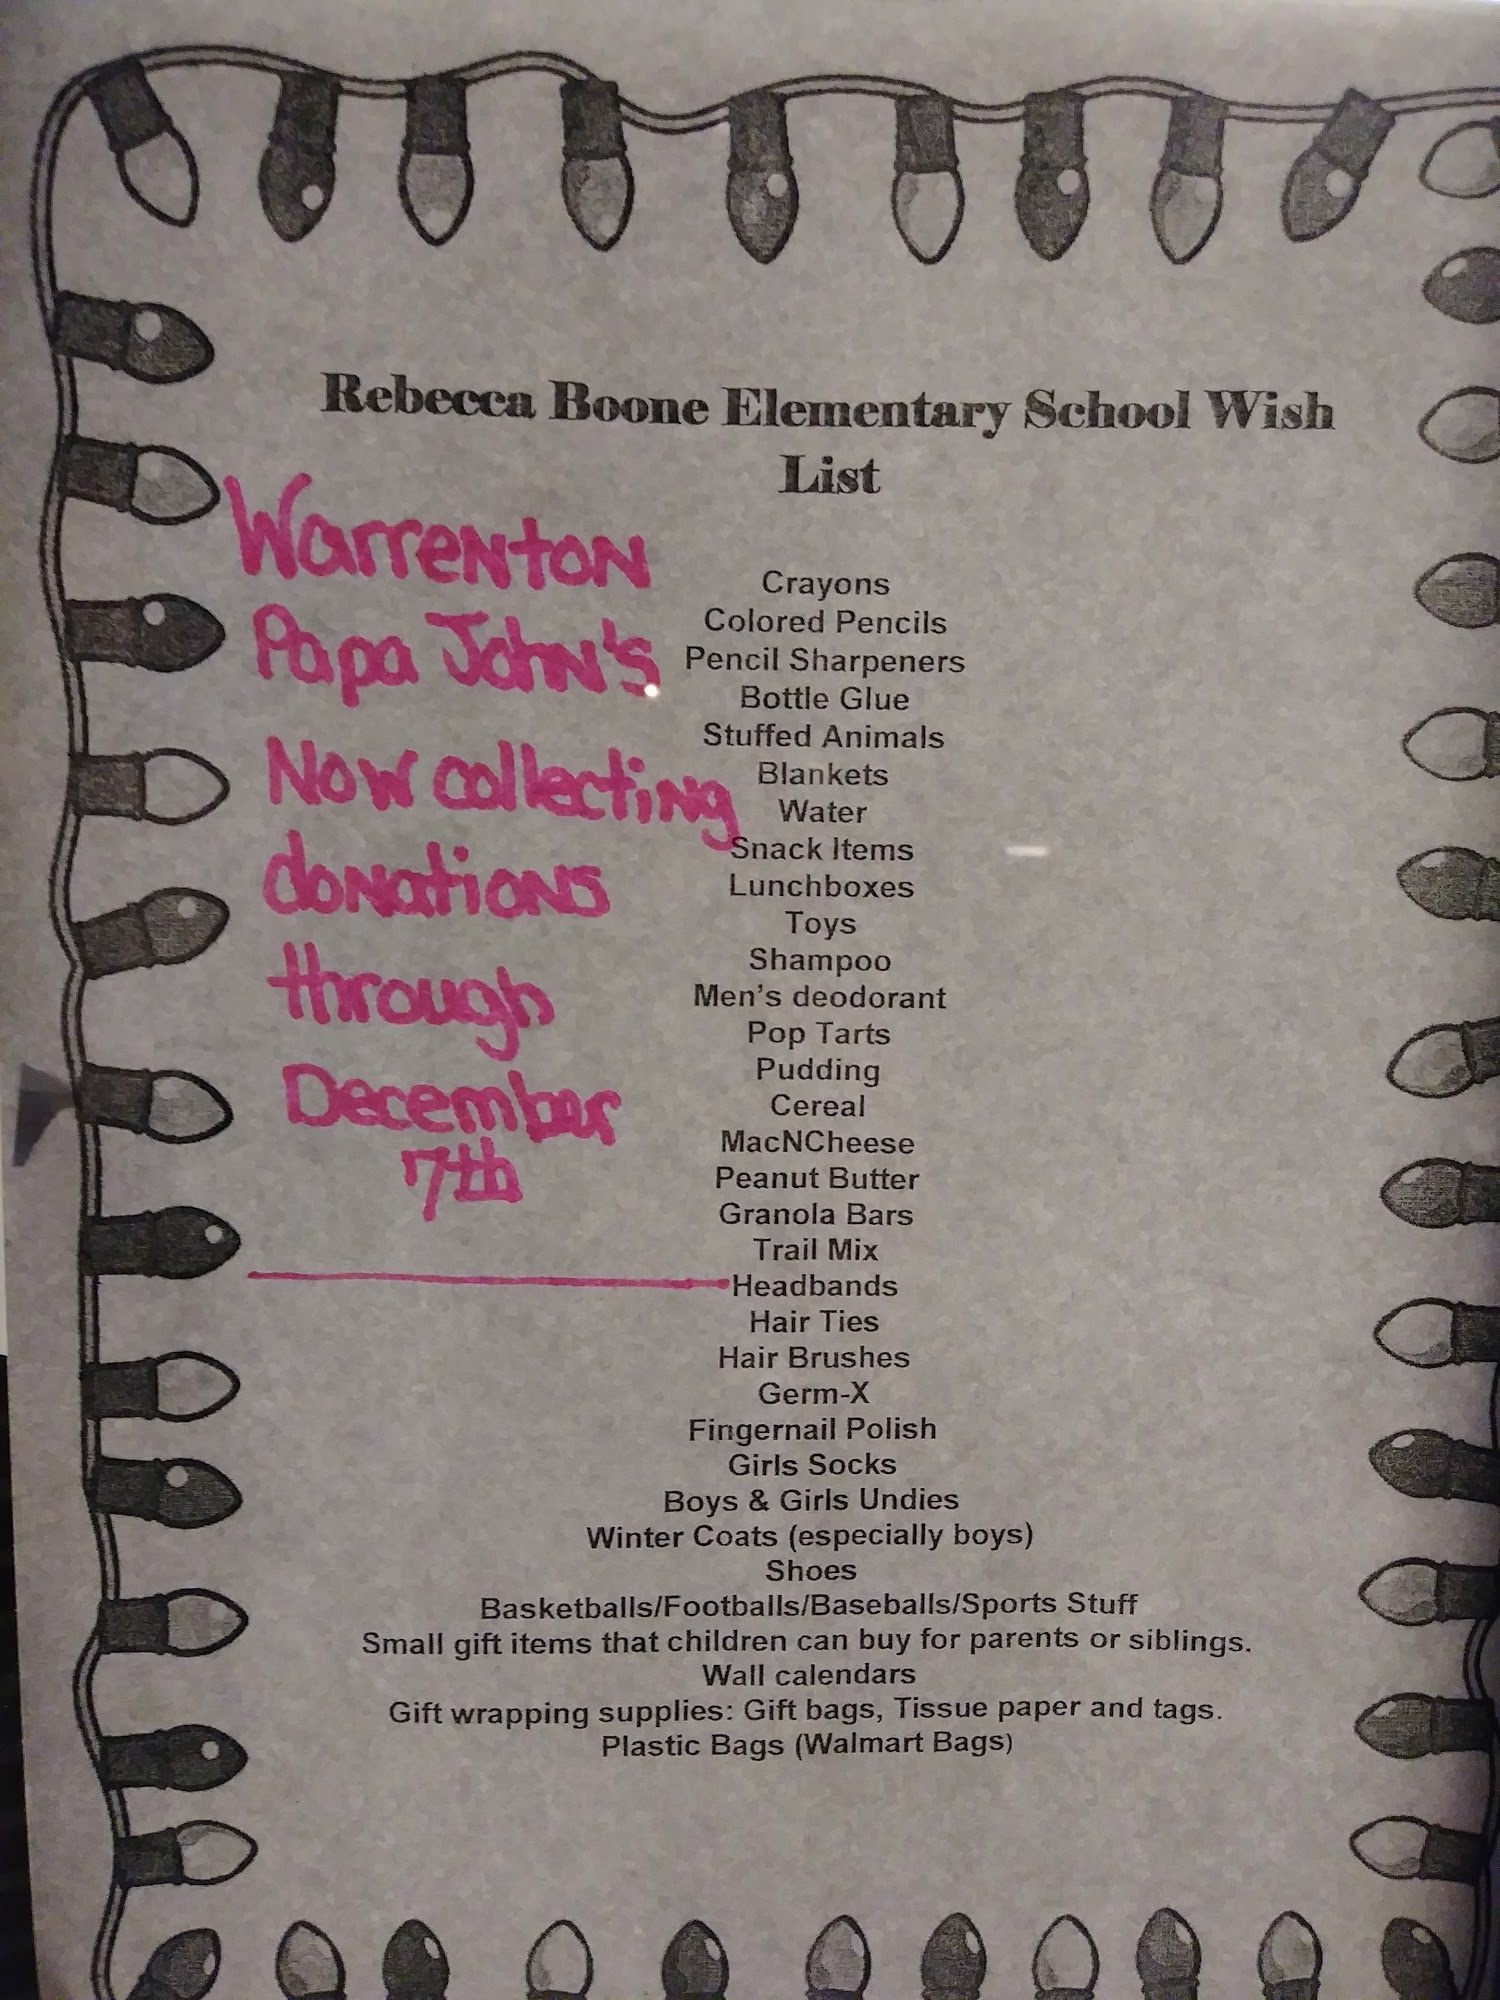 Rebecca Boone Elementary School Wish
List
Warrenton
Papa John's
Now collecting
donations
through
December
7th
Crayons
Colored Pencils
Pencil Sharpeners
Bottle Glue
Stuffed Animals
Blankets
Water
Snack Items
Lunchboxes
Toys
Shampoo
Men's deodorant
Pop Tarts
Pudding
Cereal
MacNCheese
Peanut Butter
Granola Bars
Trail Mix
Headbands
Hair Ties
Hair Brushes
Germ-X
Fingernail Polish
Girls Socks
Boys & Girls Undies
Winter Coats (especially boys)
Shoes
Basketballs/Footballs/Baseballs/Sports Stuff
Small gift items that children can buy for parents or siblings.
Wall calendars
Gift wrapping supplies: Gift bags, Tissue paper and tags.
Plastic Bags (Walmart Bags)